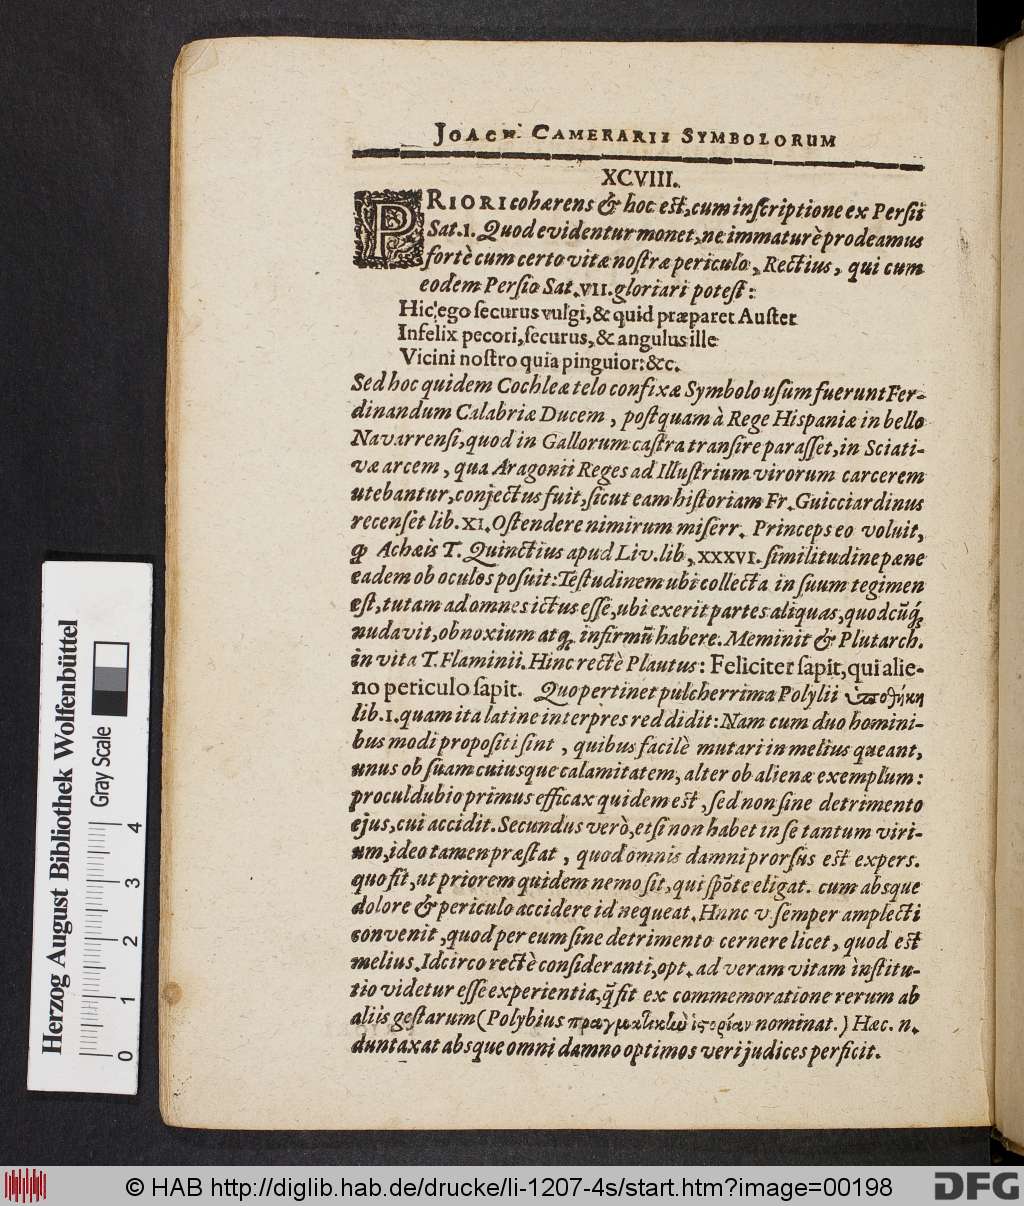 JOACH. CAMERARII SYMBOLORUM
XCVIII.
PRIORI cohærens & hoc est, cum inscriptione ex Persii
Sat. 1. Quod evidentur monet, ne immaturè prodeamus
fortè cum certo vitæ nostræ periculo, Rectius, qui cum
eodem Persio Sat. VII. gloriari potest:
Hic ego securus vulgi, & quid præparet Auster
Infelix pecori, securus, & angulus ille
Vicini nostro quia pinguior: &c.
Sed hoc quidem Cochleæ telo confixæ Symbolo usum fuerunt Fer-
dinandum Calabriæ Ducem, postquam à Rege Hispaniæ in bello
Navarrensi, quod in Gallorum castra transire parasset, in Sciati-
væ arcem, qua Aragonii Reges ad Illustrium virorum carcerem
utebantur, conjectus fuit, sicut eam historiam Fr. Guicciardinus
recenset lib. XI. Ostendere nimirum miserr. Princeps eo voluit,
ꝙ Achæis T. Quinctius apud Liv. lib, XXXVI. similitudine pæne
eadem ob oculos posuit: Testudinem ubi collecta in suum tegimen
est, tutam ad omnes ictus esse, ubi exerit partes aliquas, quodcūq;
nudavit, obnoxium atq; infirmū habere. Meminit & Plutarch.
in vita T. Flaminii. Hinc rectè Plautus: Feliciter sapit, qui alie-
no periculo sapit. Quo pertinet pulcherrima Polylii ὑποθήκη
lib. 1. quam ita latine interpres reddidit: Nam cum duo homini-
bus modi propositi sint, quibus facilè mutari in melius queant,
unus ob suam cuiusque calamitatem, alter ob alienæ exemplum:
procul dubio primus efficax quidem est, sed non sine detrimento
ejus, cui accidit. Secundus verò, etsi non habet in se tantum viri-
um, ideo tamen præstat, quod omnis damni prorsus est expers.
quo fit, ut priorem quidem nemo sit, qui spōte eligat. cum absque
dolore & periculo accidere id nequeat. Hunc v. semper amplecti
convenit, quod per eum sine detrimento cernere licet, quod est
melius. Idcirco rectè consideranti, opt. ad veram vitam institu-
tio videtur esse experientia, q̄ fit ex commemoratione rerum ab
aliis gestarum (Polybius πραγματικὴν ἱστορίαν nominat.) Hæc. n.
duntaxat absque omni damno optimos veri judices perficit.
Herzog August Bibliothek Wolfenbüttel
Gray Scale
0 1 2 3 4
© HAB http://diglib.hab.de/drucke/li-1207-4s/start.htm?image=00198
DFG